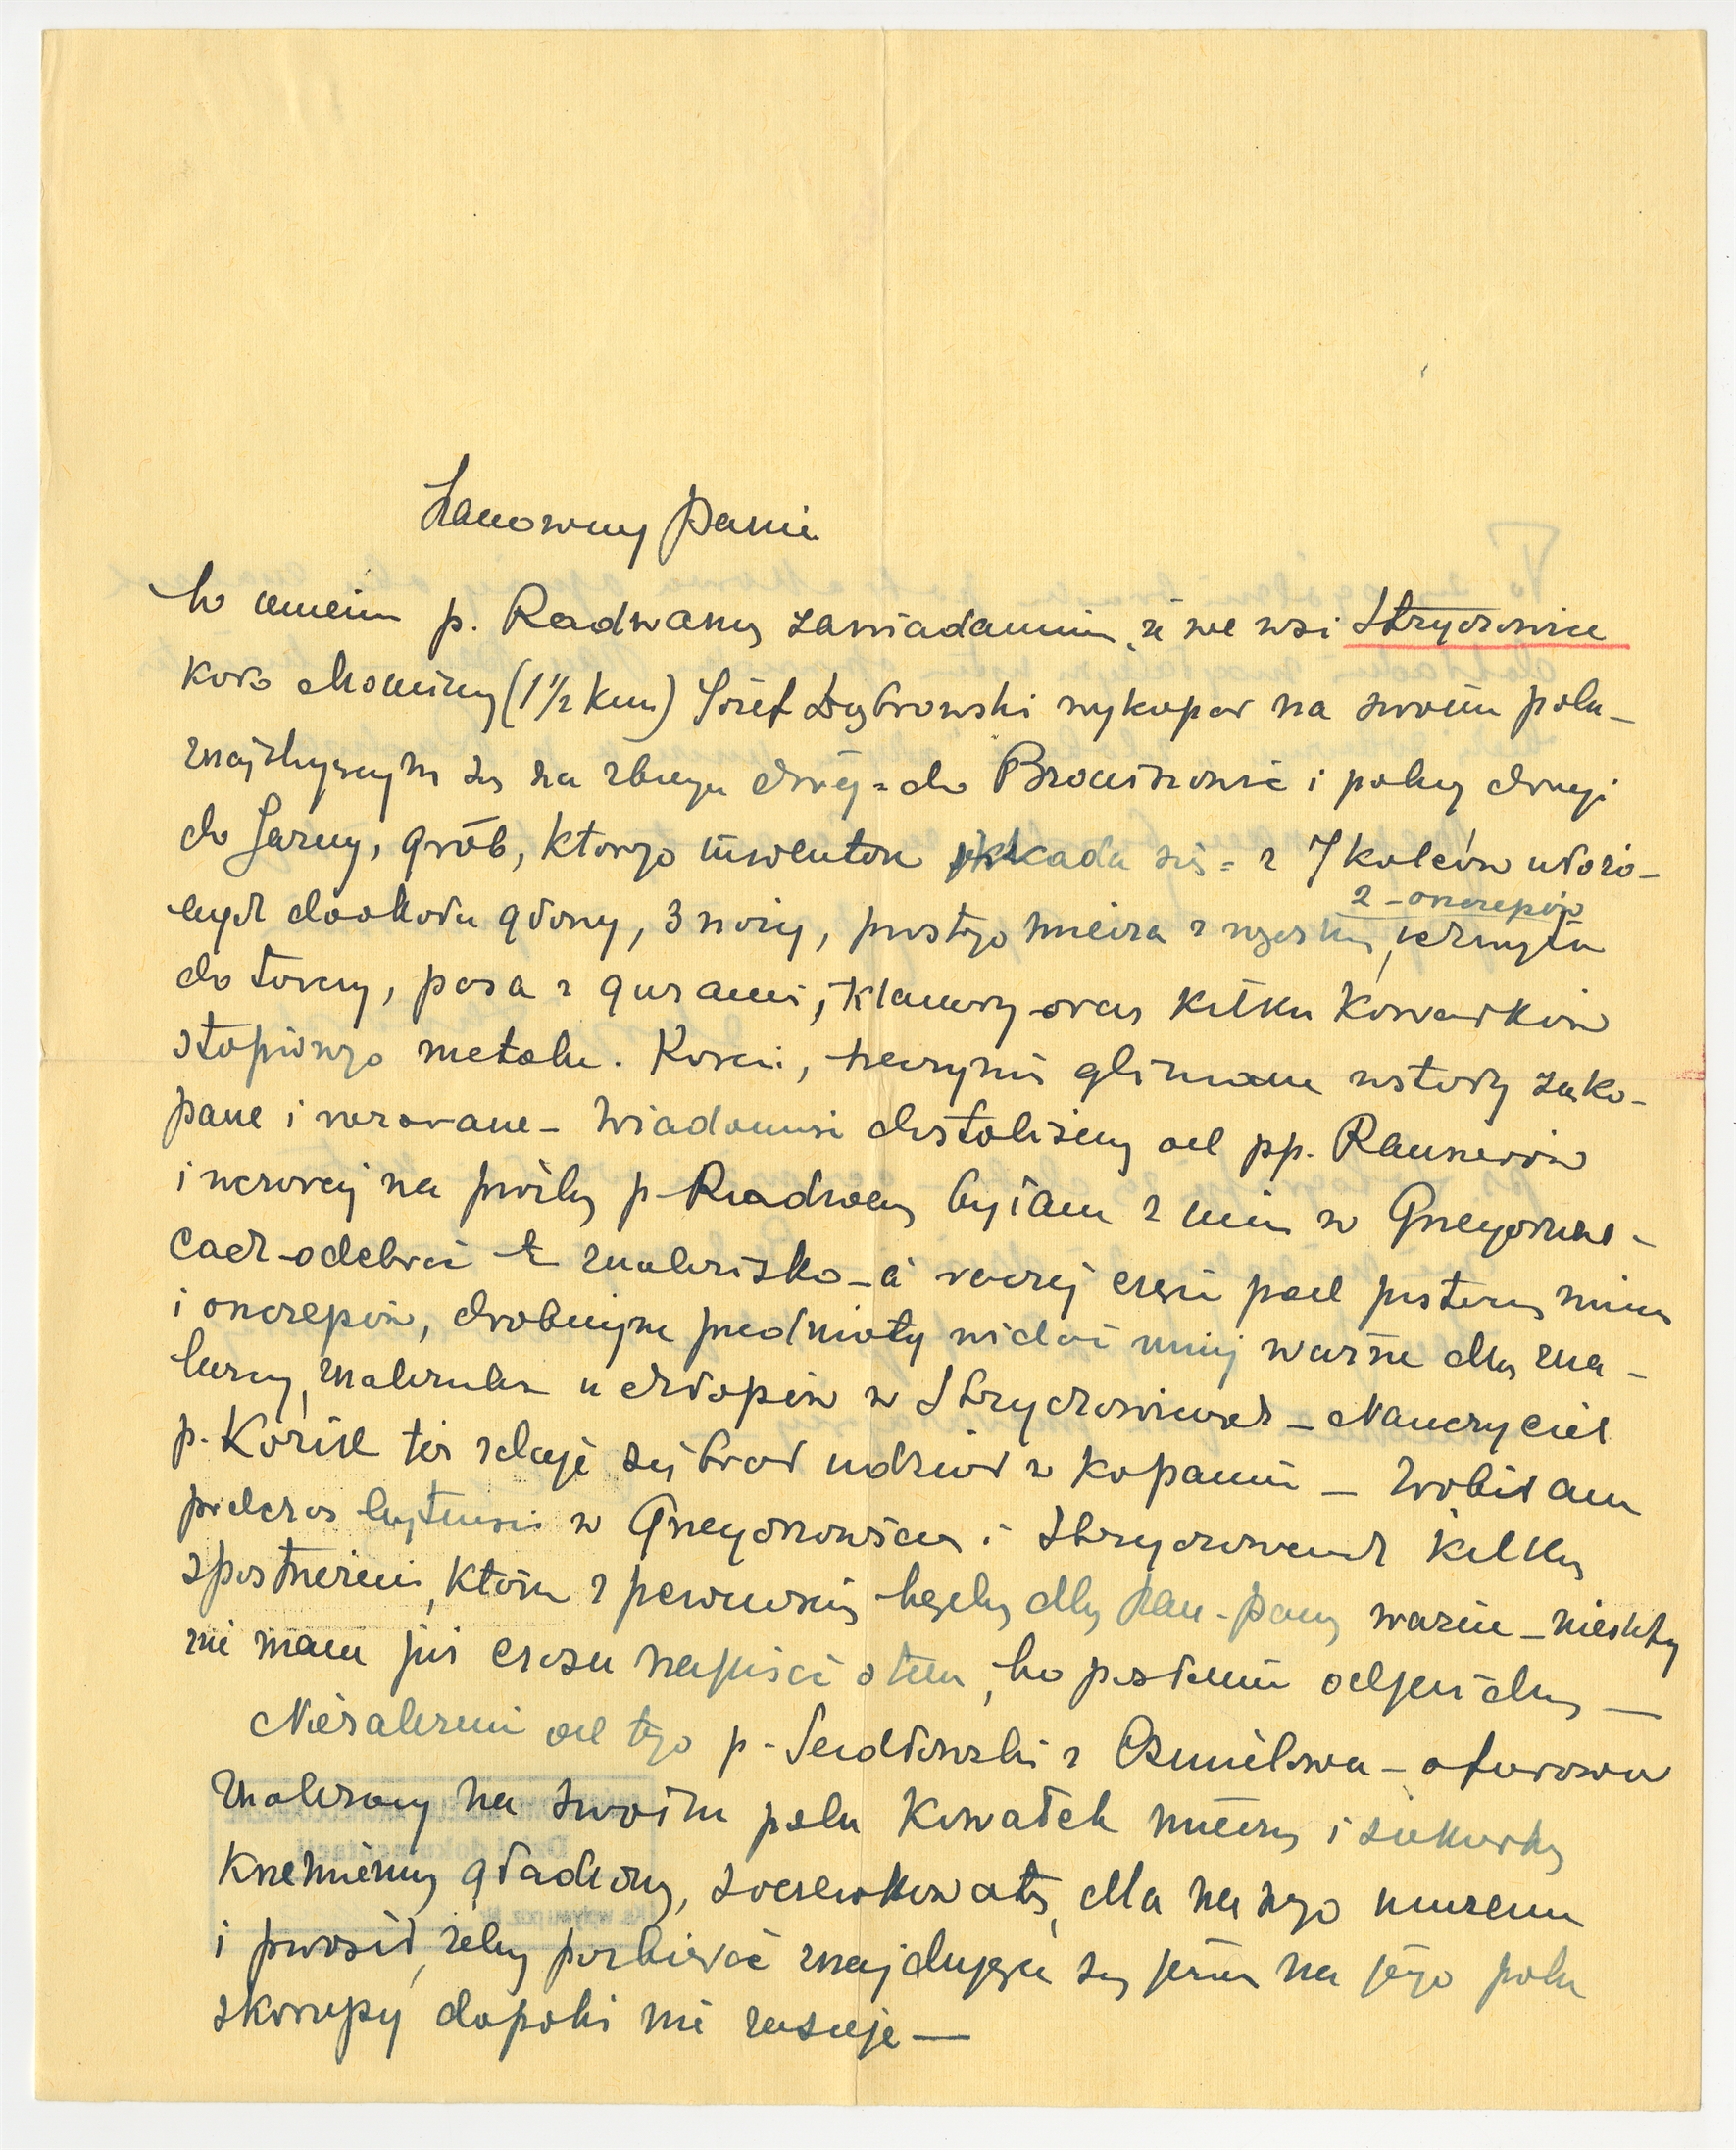 Szanowny Panie
W imieniu p. Radwana zawiadamiam, że we wsi Strychowice
koło Mominy (1½ km) Józef Dąbrowski wykopał na swoim polu –
znajdującym się na zbiegu dróg = do Broniszowic i polnej drogi
do Jarug, grób, którego inwentarz składa się = z 7 kolców ułożo-
nych dookoła głowy, 3 noży, prostego miecza z rączką, uchwytu
2 – oszczepów
do tarczy, pasa z guzami, klamry oraz kilku kawałków
stopionego metalu. Kości, naczynie gliniane zostały zako-
pane i zaorane – Wiadomość dostaliśmy od pp. Reusnerów
i wczoraj na prośbę p. Radwana byłam z nim w Grzegorzowi-
cach – odebrać to znalezisko – a raczej część pod postacią miecza
i oszczepów, drobniejsze przedmioty widać mniej ważne dla zna-
lazcy, znalazłam u chłopów w Strychowicach – Nauczyciel
p. Kozieł też zdaje się brał udział w kopaniu – Zrobiłam
podczas bytności w Grzegorzowicach i Strychowicach kilka
spostrzeżeń, które z pewnością będą dla Pana ważne – niestety
nie mam już czasu napisać o tem, bo posłaniec odjeżdża –
Niezależnie od tego p. Sendłowski z Ćmielowa – ofiarował
znaleziony na swoim polu kawałek miecza i siekierkę
krzemienną gładzoną, soczewkowatą, dla naszego muzeum
i prosił, żeby pozbierać znajdujące się jeszcze na jego polu
skorupy dopóki nie zasieje –